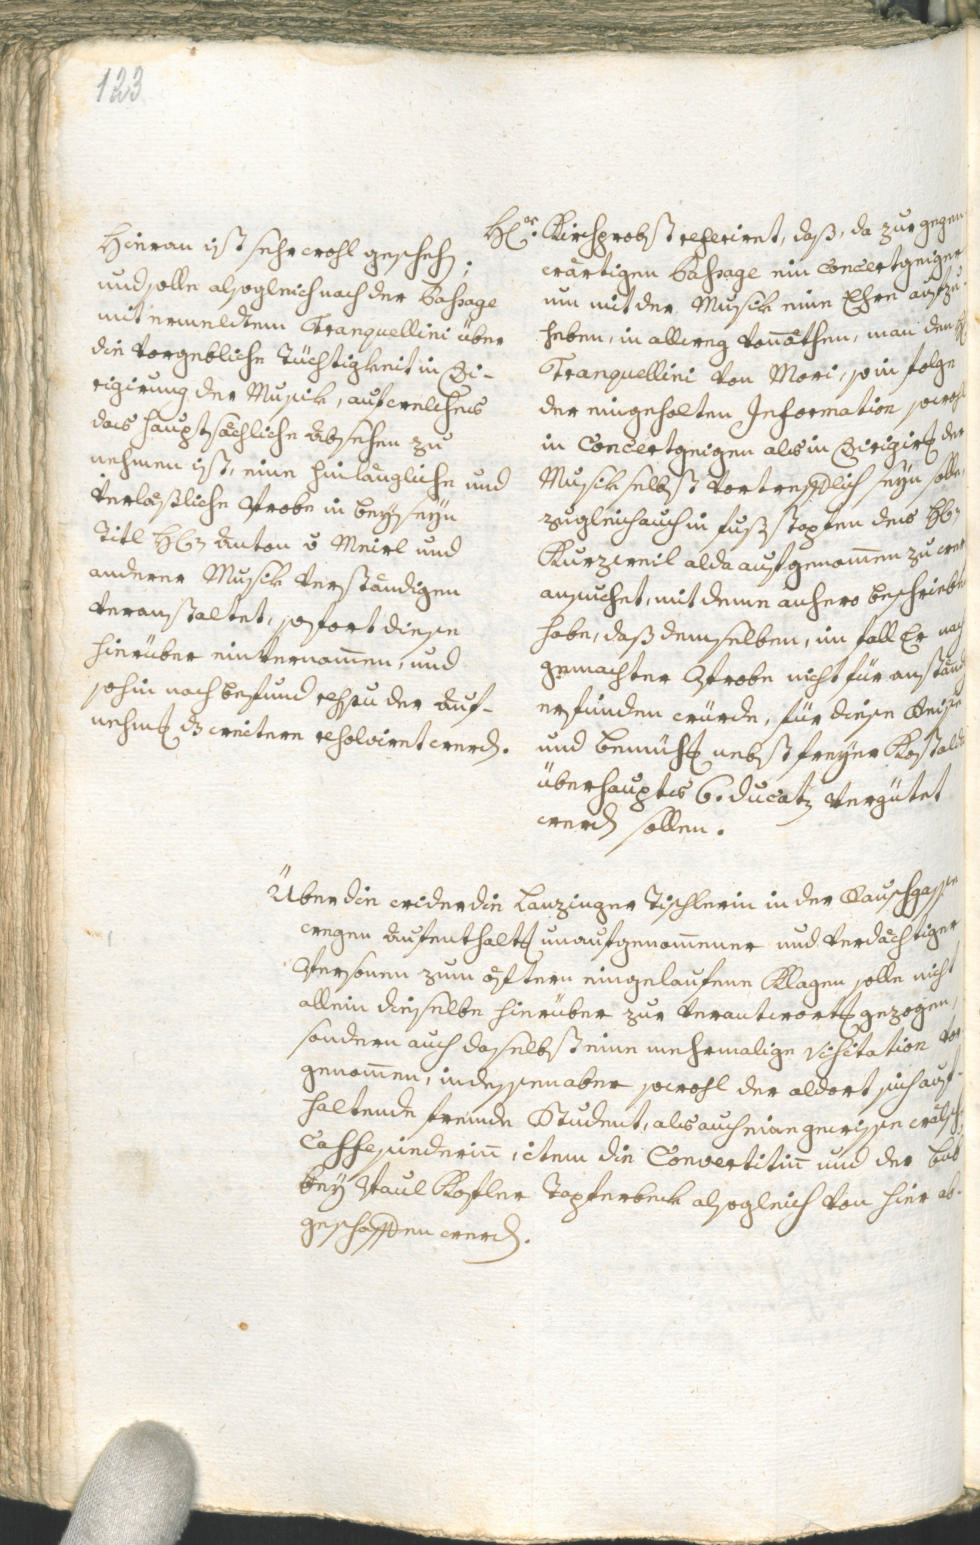 123
Hieran ist sehr wohl gescheh;
und solle alsogleich nach der Passage
mit ermeldtem Tranquellini über
die vorgebliche Tüchtigkeit in Di-
rigirung der Musik, auf welches
das hauptsächliche absehen zu
nehmen ist, eine hinlängliche und
verläßliche Probe in beyseyn
Titl H: Anton v Meirl und
anderer Musik verständigen
veranstaltet, sofort diese
hierüber einvernomen, und
sohin nach befund der Auf-
nehmg dz weitere resolviret werd.
H Kirchprobst referiret, daß, da zur gegen
wärtigen Passage ein Concertgeiger
um mit der Musik eine Ehre aufzu-
heben, in allweg vonnöthen, man den H
Tranquellini von Mori, so in folge
der eingeholten Information sowohl
in Concertgeigen als in Dirigirg der
Musik selbst vortrefflich seyn solle,
zugleich auch in fußstapfen des H:
Kurzweil alda aufgenomen zu wer
ansuchet, mit deme anhero beschrieb
habe, daß demselben, im fall Er nach
gemachter Probe nicht für anständ
erfunden würde, für diese Reise
und bemühg nebst freyer Kost alda
überhaupts 6. Ducatz vergütet
werd sollen.
Über die wider die Lanzinger Tischlerin in der Rauschgasse
wegen Aufenthalts unaufgenomener und verdächtiger
Personen zum öftern eingelaufene Klagen solle nicht
allein dieselbe hierüber zur Verantwortg gezogen,
sondern auch daselbst eine mehrmalige Visitation vor
genomen, indessen aber sowohl der aldort sich auf-
haltende fremde Student, als auch eine gewisse wälsch
Caffesiederin, item die Convertitin und der bub
bey Paul Kofler Tapferbeck alsogleich von hier ab-
geschaffen werd.